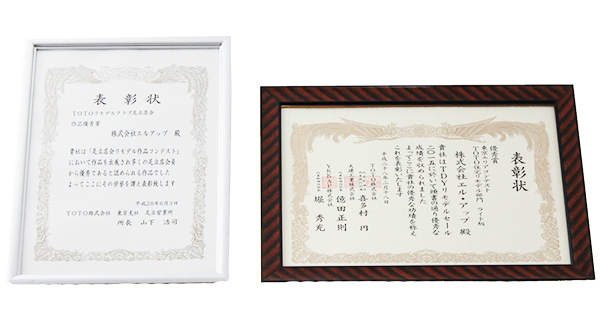 表彰状
TOTOリモデルクラブ足立店会
作品優秀賞
株式会社エルアップ 殿
貴社は「足立店会リモデル作品コンテスト」
において作品を出展され多くの足立店会会員
から優秀であると認められる作品でした
よってここにその栄誉を讃え表彰致します
平成28年6月3日
TOTO株式会社 東京支社 足立営業所
所長 山下 浩司
表彰状
優秀賞
東京エリアコンテスト
TOTO住宅リモデル部門 ライト級
株式会社エル・アップ殿
貴社はTDYリモデルセール
二〇一五に於いて頭書の通り優秀な
成績を収められました
よってここに貴社の優秀な功績を称え
これを表彰いたします
平成二十八年三月十八日
TOTO株式会社
喜多村 円
大建工業株式会社
億田正則
YKK AP株式会社
堀 秀充